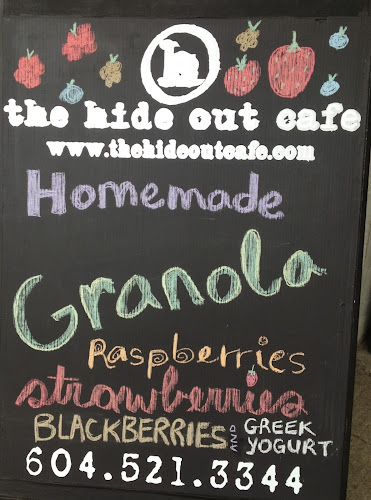 h
the hide out cafe
www.thehideoutcafe.com
Homemade
Granola
Raspberries
strawberries
BLACKBERRIES AND GREEK
YOGURT
604.521.3344